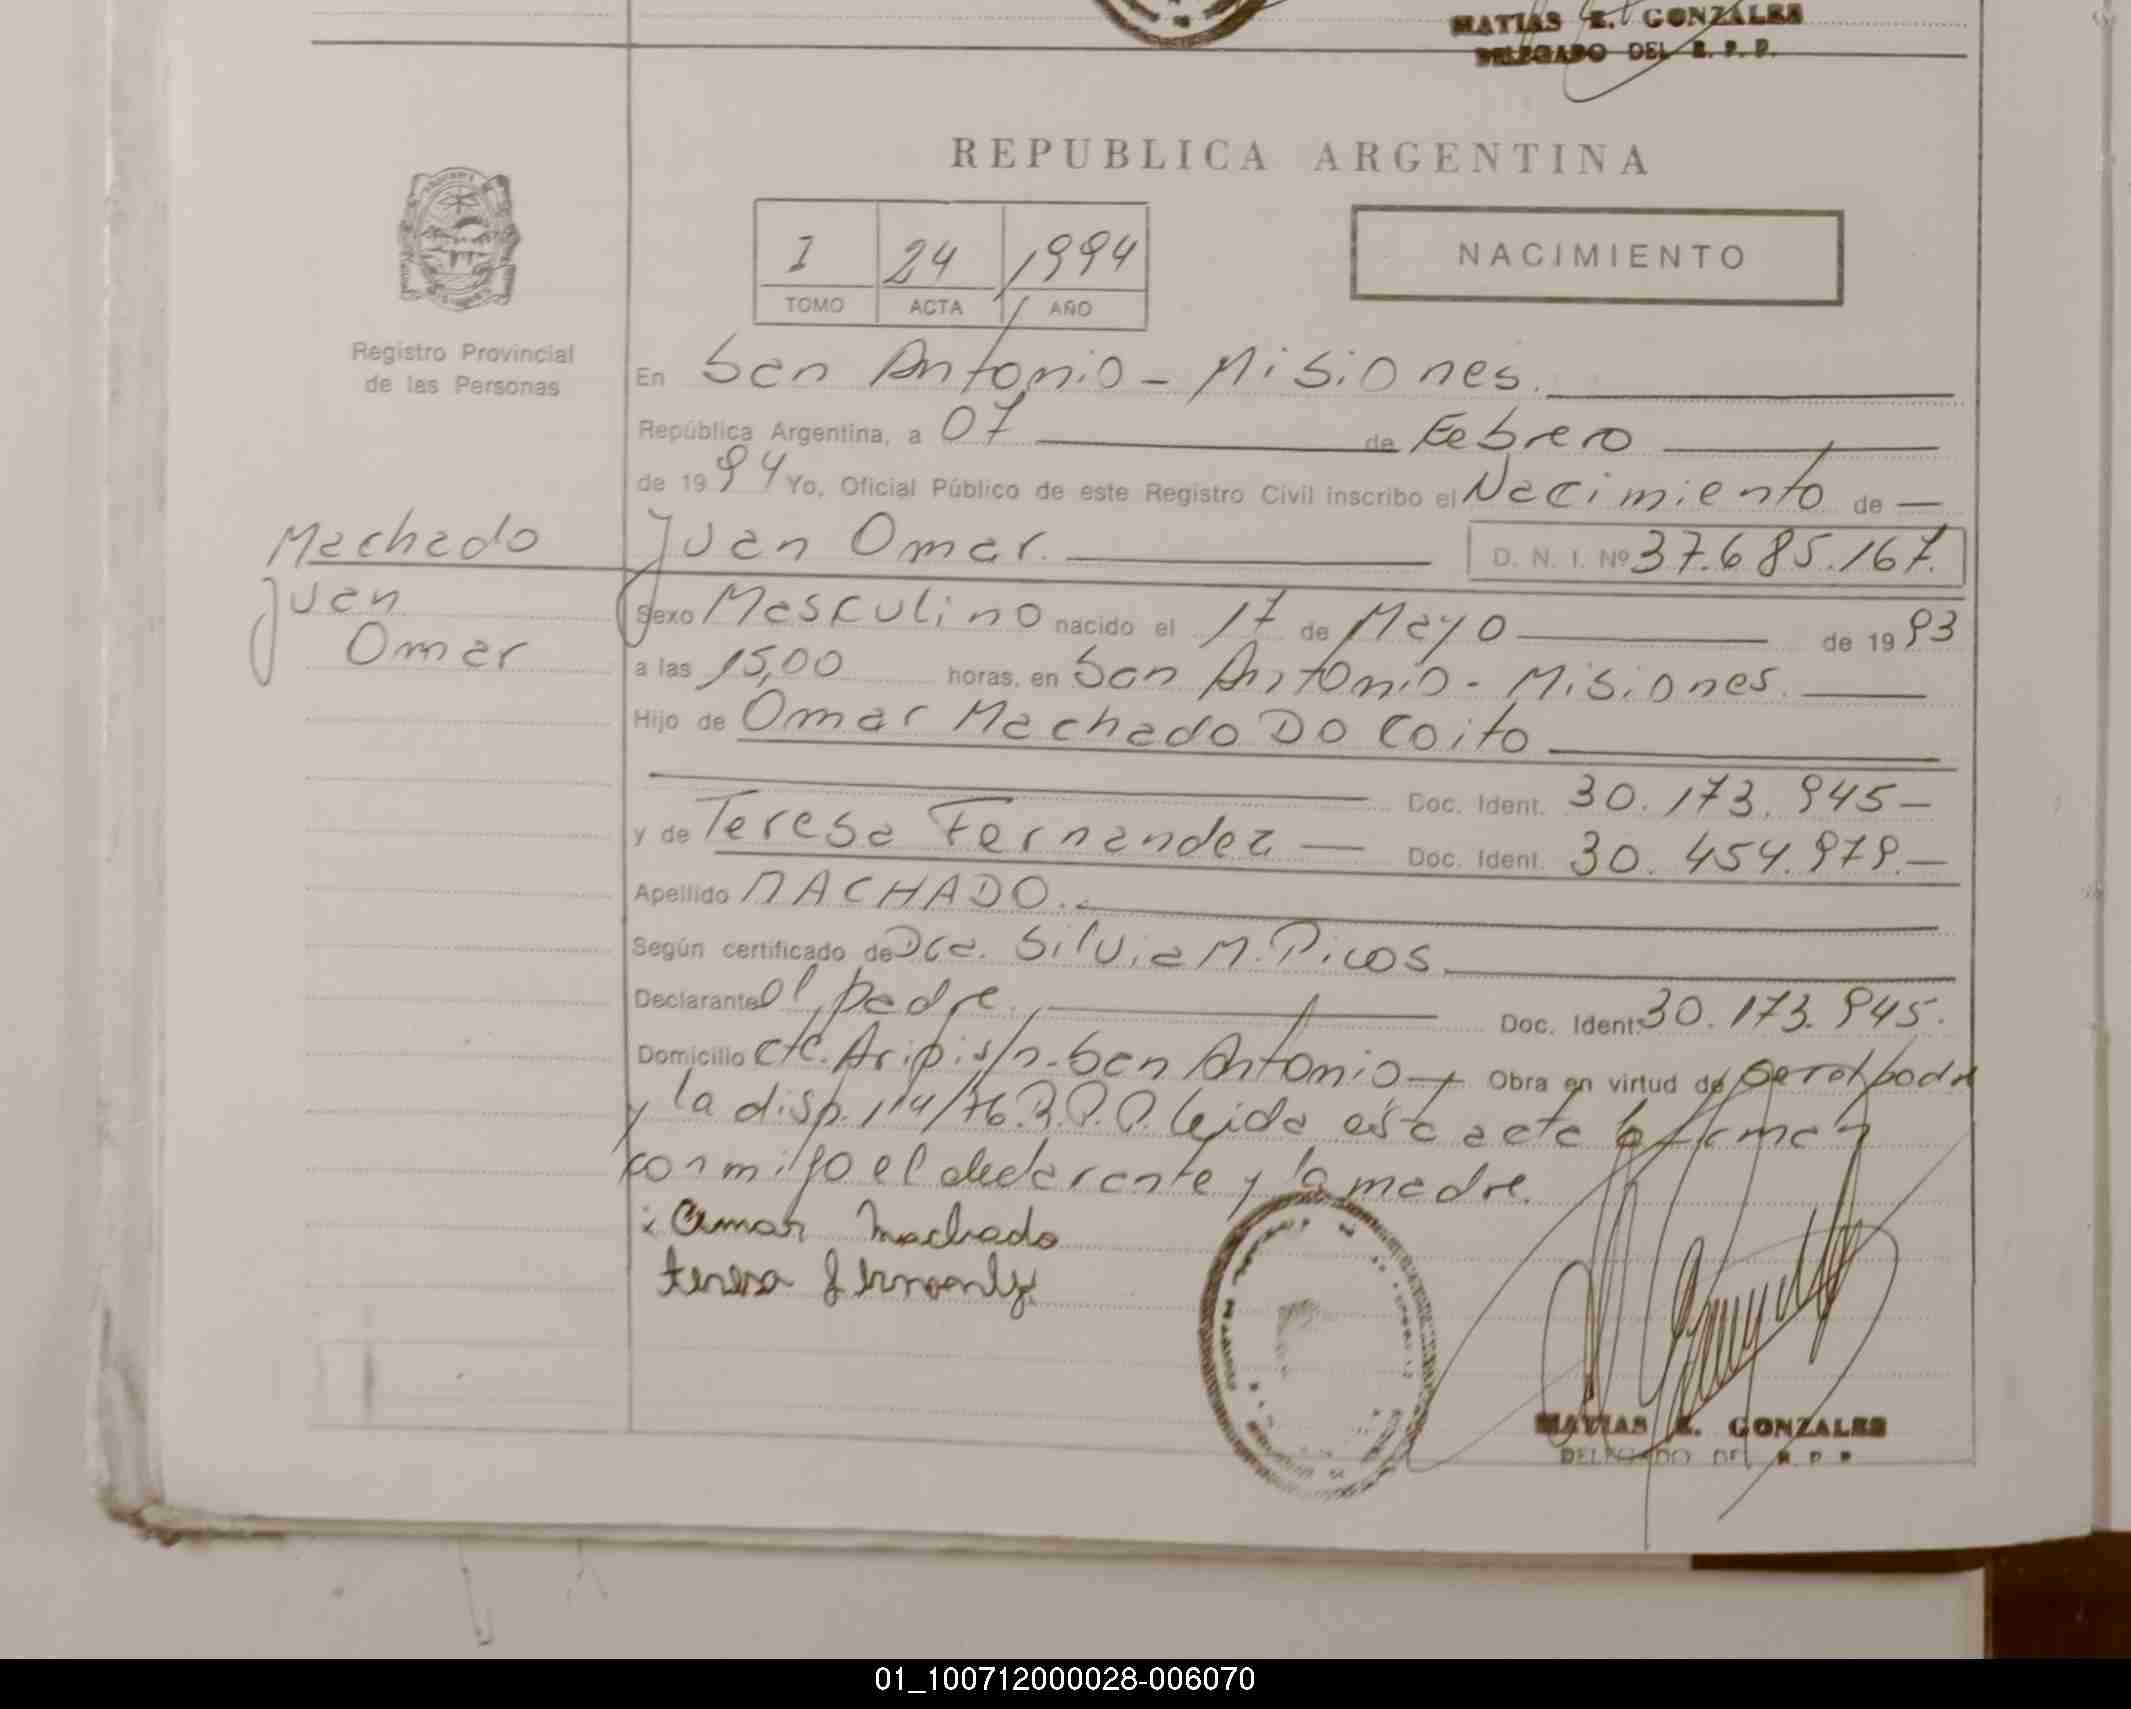 MATIAS E. GONZALES
DELEGADO DEL R. P. P.
REPUBLICA ARGENTINA
I 24 1994
TOMO ACTA AÑO
NACIMIENTO
Registro Provincial
de las Personas
En San Antonio - Misiones.
República Argentina, a 07 de Febrero
de 1994 Yo, Oficial Público de este Registro Civil inscribo el Nacimiento de
Machado
Juan
Omar
Juan Omar. D. N. I. Nº 37.685.167.
Sexo Masculino nacido el 17 de Mayo de 1993
a las 15,00 horas, en San Antonio - Misiones.
Hijo de Omar Machado Do Coito
Doc. Ident. 30.173.945-
y de Teresa Fernandez - Doc. Ident. 30.454.979.-
Apellido MACHADO.-
Según certificado de Dra. Silvia M. Picos
Declarante el padre. Doc. Ident: 30.173.945.
Domicilio Cte. Aripi s/n. San Antonio - Obra en virtud de
y la disp. 114/76.R.P.P. leida esta acta la firman
conmigo el declarante y la madre.
x Omar Machado
teresa fernandez
MATIAS E. GONZALES
DELEGADO DEL R. P. P.
01_100712000028-006070